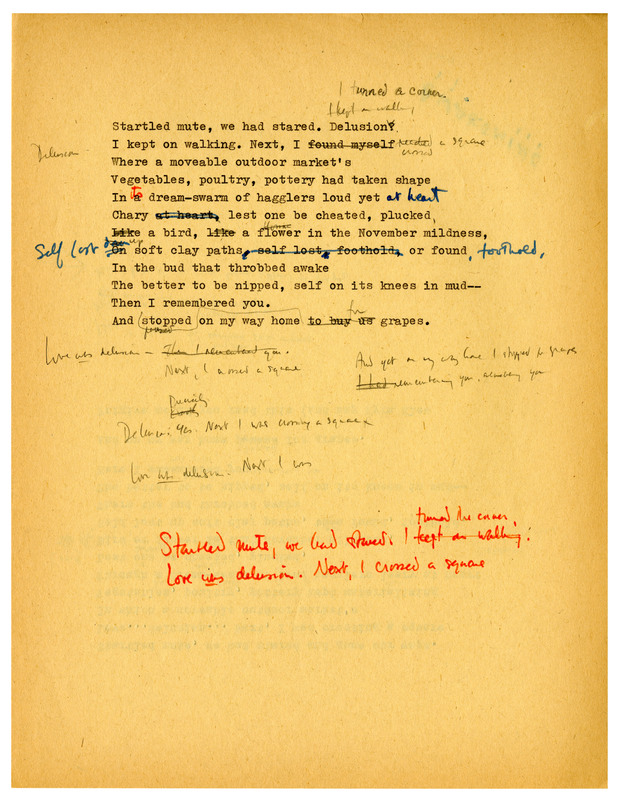 I turned a corner.
I kept on walking
Startled mute, we had stared. Delusion?
Delusion
I kept on walking. Next, I found myself crossed a square
Where a moveable outdoor market's
Vegetables, poultry, pottery had taken shape
In a to dream-swarm of hagglers loud yet at heart
Chary at heart, lest one be cheated, plucked,
Like a bird, like a flower in the November mildness,
Self lost
On soft clay paths, self lost, foothold, or found, foothold,
In the bud that throbbed awake
The better to be nipped, self on its knees in mud--
Then I remembered you.
for
And stopped on my way home to buy us grapes.
paused
Love was delusion – Then I remembered you.
Next, I crossed a square
And yet on my way home I stopped for grapes
I had remembering you, remembering you
Delusion. Yes. Next I was crossing a square
Love was delusion. Next, I was
turned the corner,
Startled mute, we had stared. I kept on walking:
Love was delusion. Next, I crossed a square